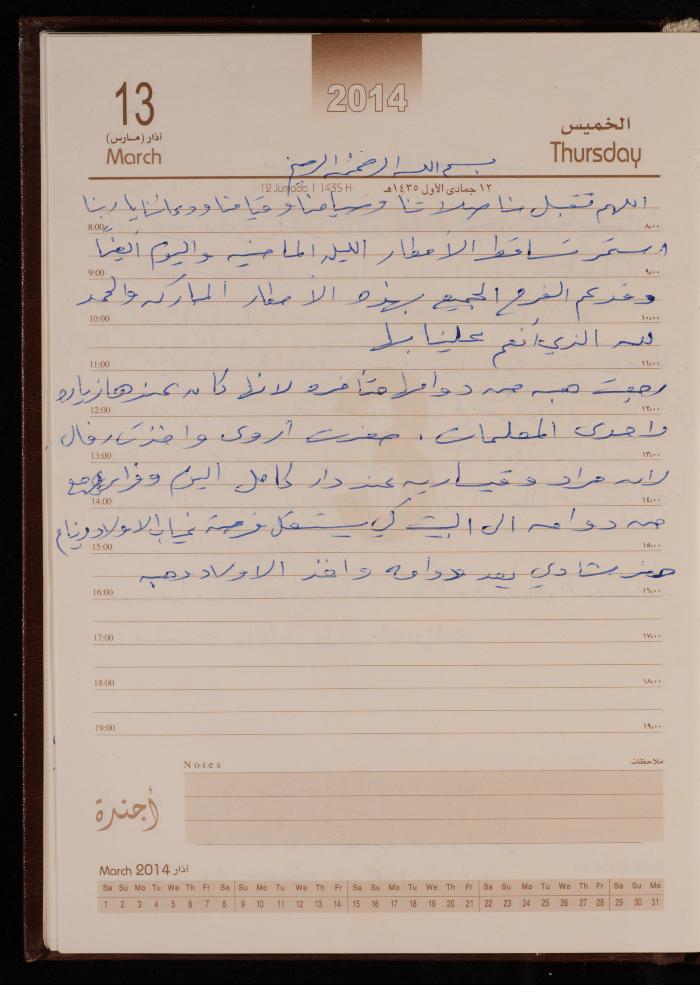 2014
13
آذار (مارس)
March
الخميس
Thursday
بسم الله الرحمن الرحيم
12 Jumada I 1435 H
١٢ جمادى الأول ١٤٣٥هـ
اللهم تقبل منا صلاتنا وصيامنا وقيامنا ودعائنا يا ربنا
8:00 ٨:٠٠
استمر تساقط الأمطار الليلة الماضية واليوم أيضاً
9:00 ٩:٠٠
وقد عم الفرح الجميع بهذه الأمطار المباركة والحمد
10:00 ١٠:٠٠
لله الذي أنعم علينا بها
11:00 ١١:٠٠
رجعت هبه من دوامها متأخره لانها كان عندها زياره
12:00 ١٢:٠٠
لاحدى المعلمات. حضرت أروى واخذت رفال
13:00 ١٣:٠٠
لانه مراد وقيس عند دار كامل اليوم
14:00 ١٤:٠٠
من دوامه الى البيت كي يستغل فرصة غياب الاولاد وينام
15:00 ١٥:٠٠
حضر شادي بعد دوامه واخذ الاولاد وهبه
16:00 ١٦:٠٠
17:00 ١٧:٠٠
18:00 ١٨:٠٠
19:00 ١٩:٠٠
Notes ملاحظات
أجندة
March 2014 آذار
Sa Su Mo Tu We Th Fr Sa Su Mo Tu We Th Fr Sa Su Mo Tu We Th Fr Sa Su Mo Tu We Th Fr Sa Su Mo
1 2 3 4 5 6 7 8 9 10 11 12 13 14 15 16 17 18 19 20 21 22 23 24 25 26 27 28 29 30 31